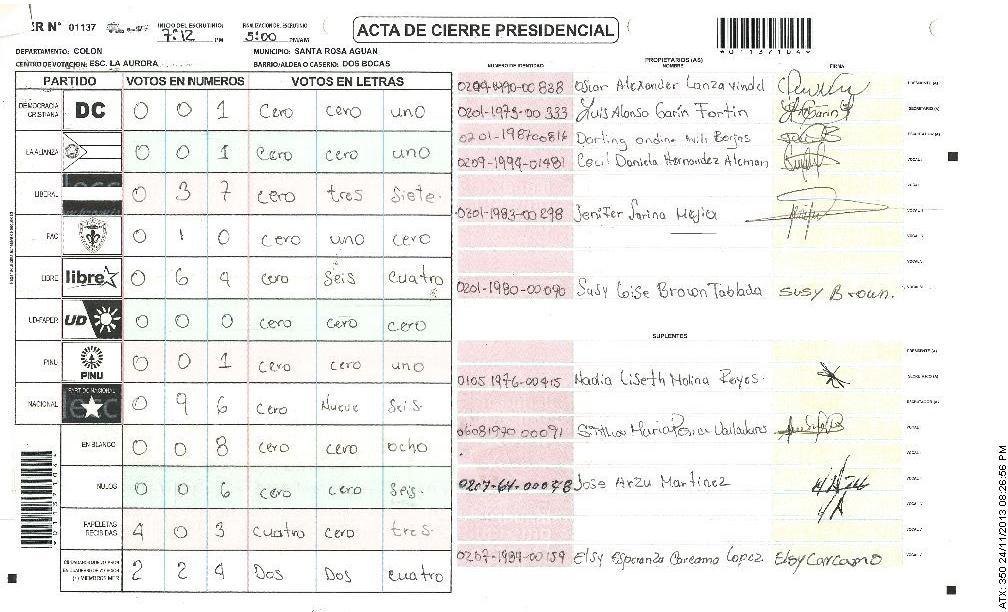 ER N° 01137
INICIO DEL ESCRUTINIO: 7:12 PM
FINALIZACION DEL ESCRUTINIO 5:00 PM/AM
ACTA DE CIERRE PRESIDENCIAL
DEPARTAMENTO: COLON
MUNICIPIO: SANTA ROSA AGUAN
CENTRO DE VOTACION: ESC. LA AURORA
BARRIO/ALDEA O CASERIO: DOS BOCAS
PARTIDO VOTOS EN NUMEROS VOTOS EN LETRAS
DEMOCRACIA CRISTIANA DC 0 0 1 cero cero uno
LA ALIANZA 0 0 1 cero cero uno
LIBERAL 0 3 7 cero tres siete.
FAC 0 1 0 cero uno cero
LIBRE libre 0 6 4 cero Seis cuatro
UD-FAPER UD 0 0 0 cero cero cero
PINU PINU 0 0 1 cero cero uno
NACIONAL PARTIDO NACIONAL 0 9 6 cero Nueve Seis.
EN BLANCO 0 0 8 cero cero ocho
NULOS 0 0 6 cero cero Seis.
PAPELETAS RECIBIDAS 4 0 3 cuatro cero tres.
2 2 4 Dos Dos cuatro
NUMERO DE IDENTIDAD
PROPIETARIOS (AS)
NOMBRE
FIRMA
Oscar Alexander Lanza
PRESIDENTE (A)
0201-1973-00 333 Luis Alonso Garin Fortin
SECRETARIO (A)
Borjas
ESCRUTADOR (A)
Cecil Daniela Hernandez Aleman
0301-1983-00298 Jenifer Mejia
0201-1980-00090 Susy Brown Tablada SUSY Brown.
SUPLENTES
PRESIDENTE (A)
0105 1976-00415 Nadia Liseth Molina Reyes.
SECRETARIO (A)
ESCRUTADOR (A)
0608 1970 00091 Maria Valladares
Jose Arzu Martinez
Elsy Esperanza Carcamo Lopez Elsy Carcamo
ATX: 350 24/11/2013 08:26:56 PM